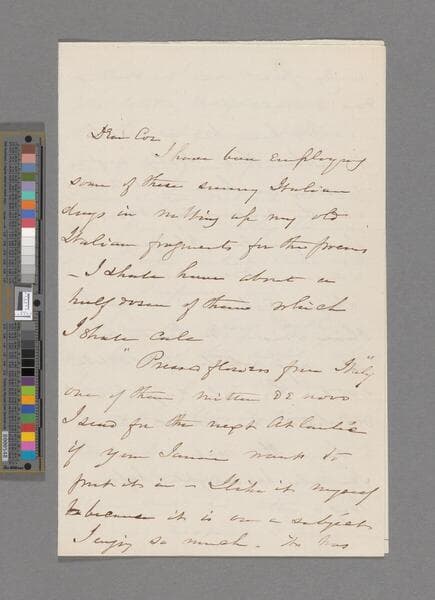 Dear
I have been employing
some of these sunny Italian
days in rubbing up my old
Italian fragments for the poems
– I shall have about a
half dozen of them which
I shall call
"Pressed flowers from Italy"
one of them written de novo
I send for the next Atlantic
if your wants to
put it in – I like it myself
because it is on a subject
I enjoy so much. was